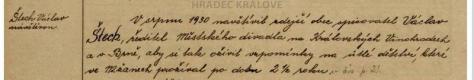 HRADEC KRÁLOVÉ
Štech Václav
návštěvou
V srpnu 1930 navštívil zdejší obec, spisovatel Václav
Štech, ředitel Městského divadla na Královských Vinohradech
a v Brně, aby si tak oživil vzpomínky na útlé dětství, které
ve Mžanech prožíval po dobu 2½ roku